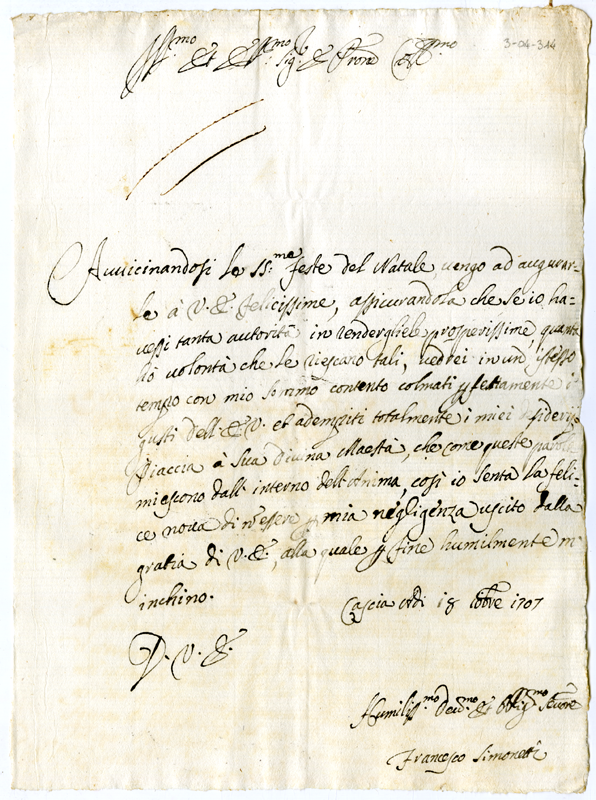 Ill.mo et Ecc.mo Sig.r e Prone Coll.mo
3-04-314
Avvicinandosi le SS.me feste del Natale vengo ad augurar-
le à V. E. felicissime, assicurandola che se io ha-
vessi tanta autorità in rendergliele prosperissime, quanta
hò volontà che le riescano tali, vedrei in un istesso
tempo con mio sommo contento colmati perfettamente i
gusti dell'E. V. et adempiti totalmente i miei desiderij
Piaccia à Sua Divina Maestà, che come queste parole
mi escono dall'interno dell'Anima, così io senta la feli-
ce nova di n'essere per mia negligenza uscito dalla
gratia di V. E., alla quale per fine humilmente m'
inchino.
Cascia 18 Xbre 1707
D. V. E.
Humiliss.mo Dev.mo et Obblig.mo Servore
Francesco Simonetti